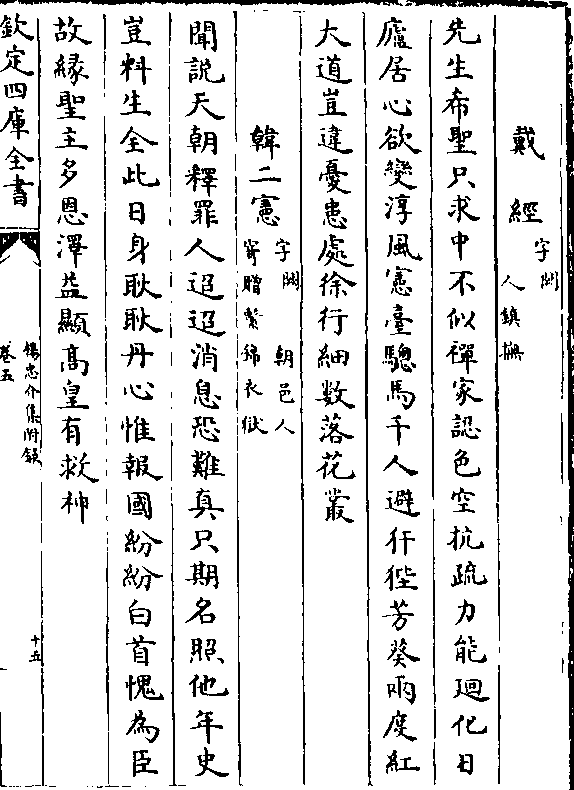 戴經字闕
人鎮撫
先生希聖只求中不似禪家認色空抗疏力能廻化日
廬居心欲變淳風憲臺驄馬千人避犴狴芳葵兩度紅
大道豈違憂患處徐行細數落花叢
韓二憲字闕 朝邑人
寄贈繫錦衣獄
聞說天朝釋罪人迢迢消息恐難真只期名照他年史
豈料生全此日身耿耿丹心惟報國紛紛白首愧為臣
故緣聖主多恩澤益顯高皇有救神
欽定四庫全書
楊忠介集附錄
卷五
十五